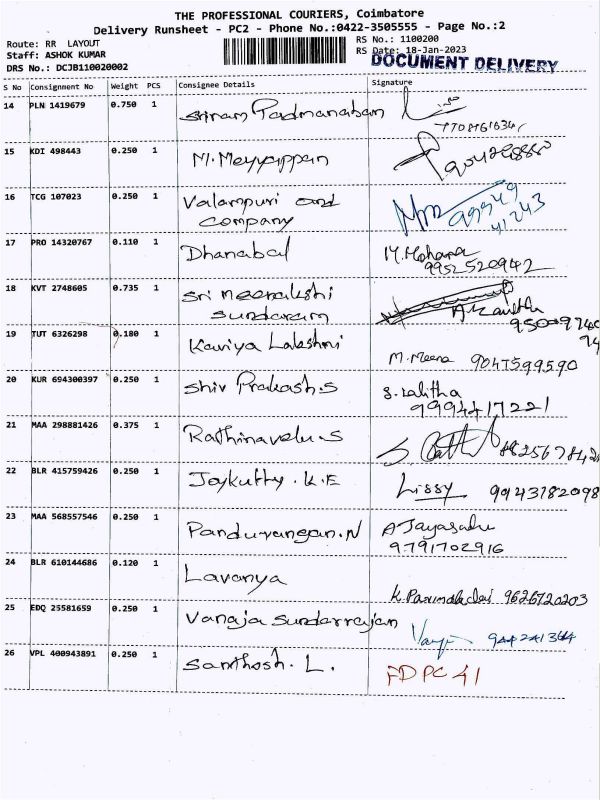 THE PROFESSIONAL COURIERS, Coimbatore
Delivery Runsheet - PC2 - Phone No.:0422-3505555 - Page No.:2
Route: RR LAYOUT
RS No.: 1100200
Staff: ASHOK KUMAR
RS Date: 18-Jan-2023
DRS No.: DCJB110020002
DOCUMENT DELIVERY
S No Consignment No Weight PCS Consignee Details Signature
14 PLN 1419679 0.750 1 Sriram Padmanaban
15 KDI 498443 0.250 1 M. Meyyappan
16 TCG 107023 0.250 1 Valampuri and
company
99949
41243
17 PRO 14320767 0.110 1 Dhanabal M. Mohana
9952520942
18 KVT 2748605 0.735 1 Sri meenakshi
Sundaram
19 TUT 6326298 0.180 1 Kaviya Lakshmi
M. Meena 9047599590
20 KUR 694300397 0.250 1 Shiv Prakash.S S. Lalitha
9994417221
21 MAA 298881426 0.375 1 Rathinavelu.S
22 BLR 415759426 0.250 1 Jaykutty. K.E Lissy 9943782098
23 MAA 568557546 0.250 1 Pandurangan.N A Jayasadu
9791702916
24 BLR 610144686 0.120 1 Lavanya
9626720203
25 EDQ 25581659 0.250 1 Vanaja Sundarrajan
26 VPL 400943891 0.250 1 Santhosh. L. FDPC 41